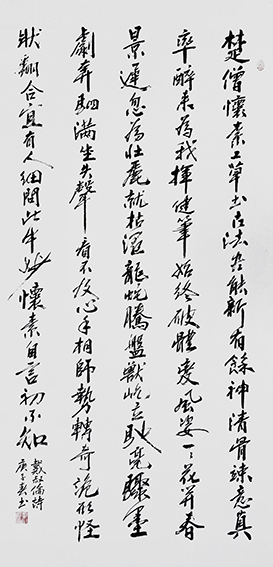 楚僧懷素工草書古法尽能新有餘神清骨竦意真
率醉来為我揮健筆始終破體變風姿一一花開春
景遲忽為壯麗就枯澀龍蛇騰盤獸屹立馳毫驟墨
劇奔駟滿坐失聲看不及心手相師勢轉奇詭形怪
狀翻合宜有人細問此中妙懷素自言初不知
戴叔倫詩
庚子書